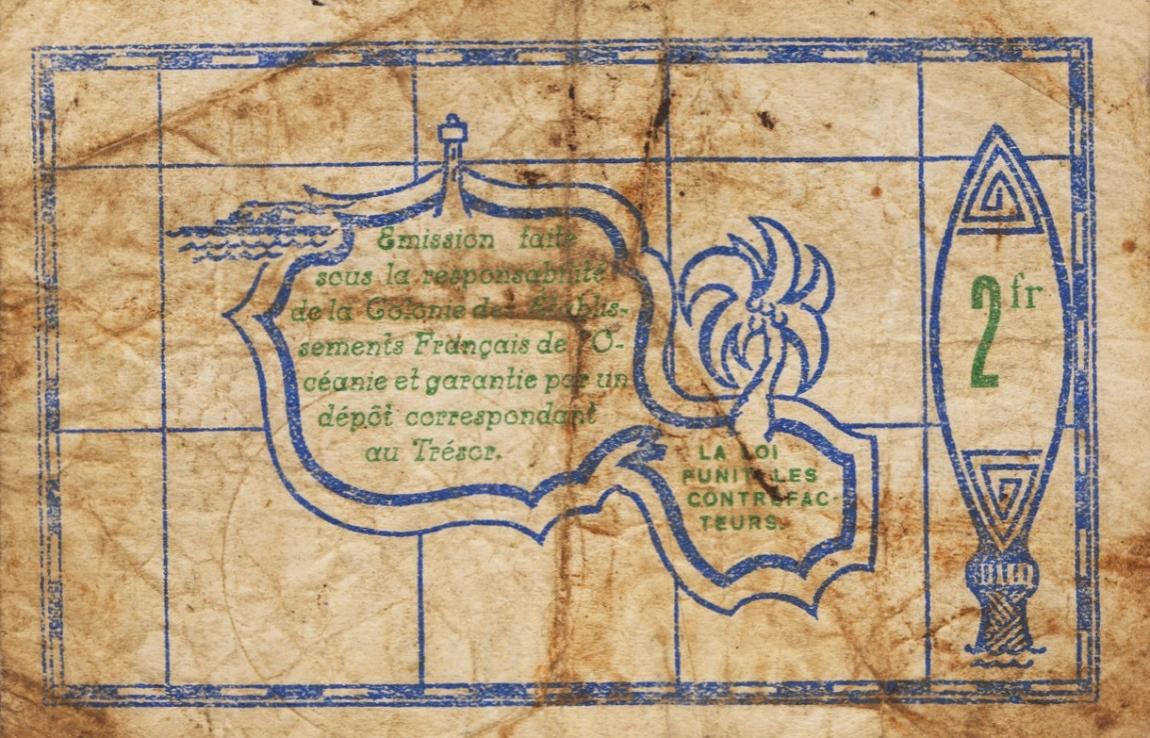 Emission faite
sous la responsabilité
de la Colonie des Etablis-
sements Français de l'O-
céanie et garantie par un
dépôt correspondant
au Trésor.
LA LOI
PUNIT LES
CONTREFAC
TEURS.
2 fr